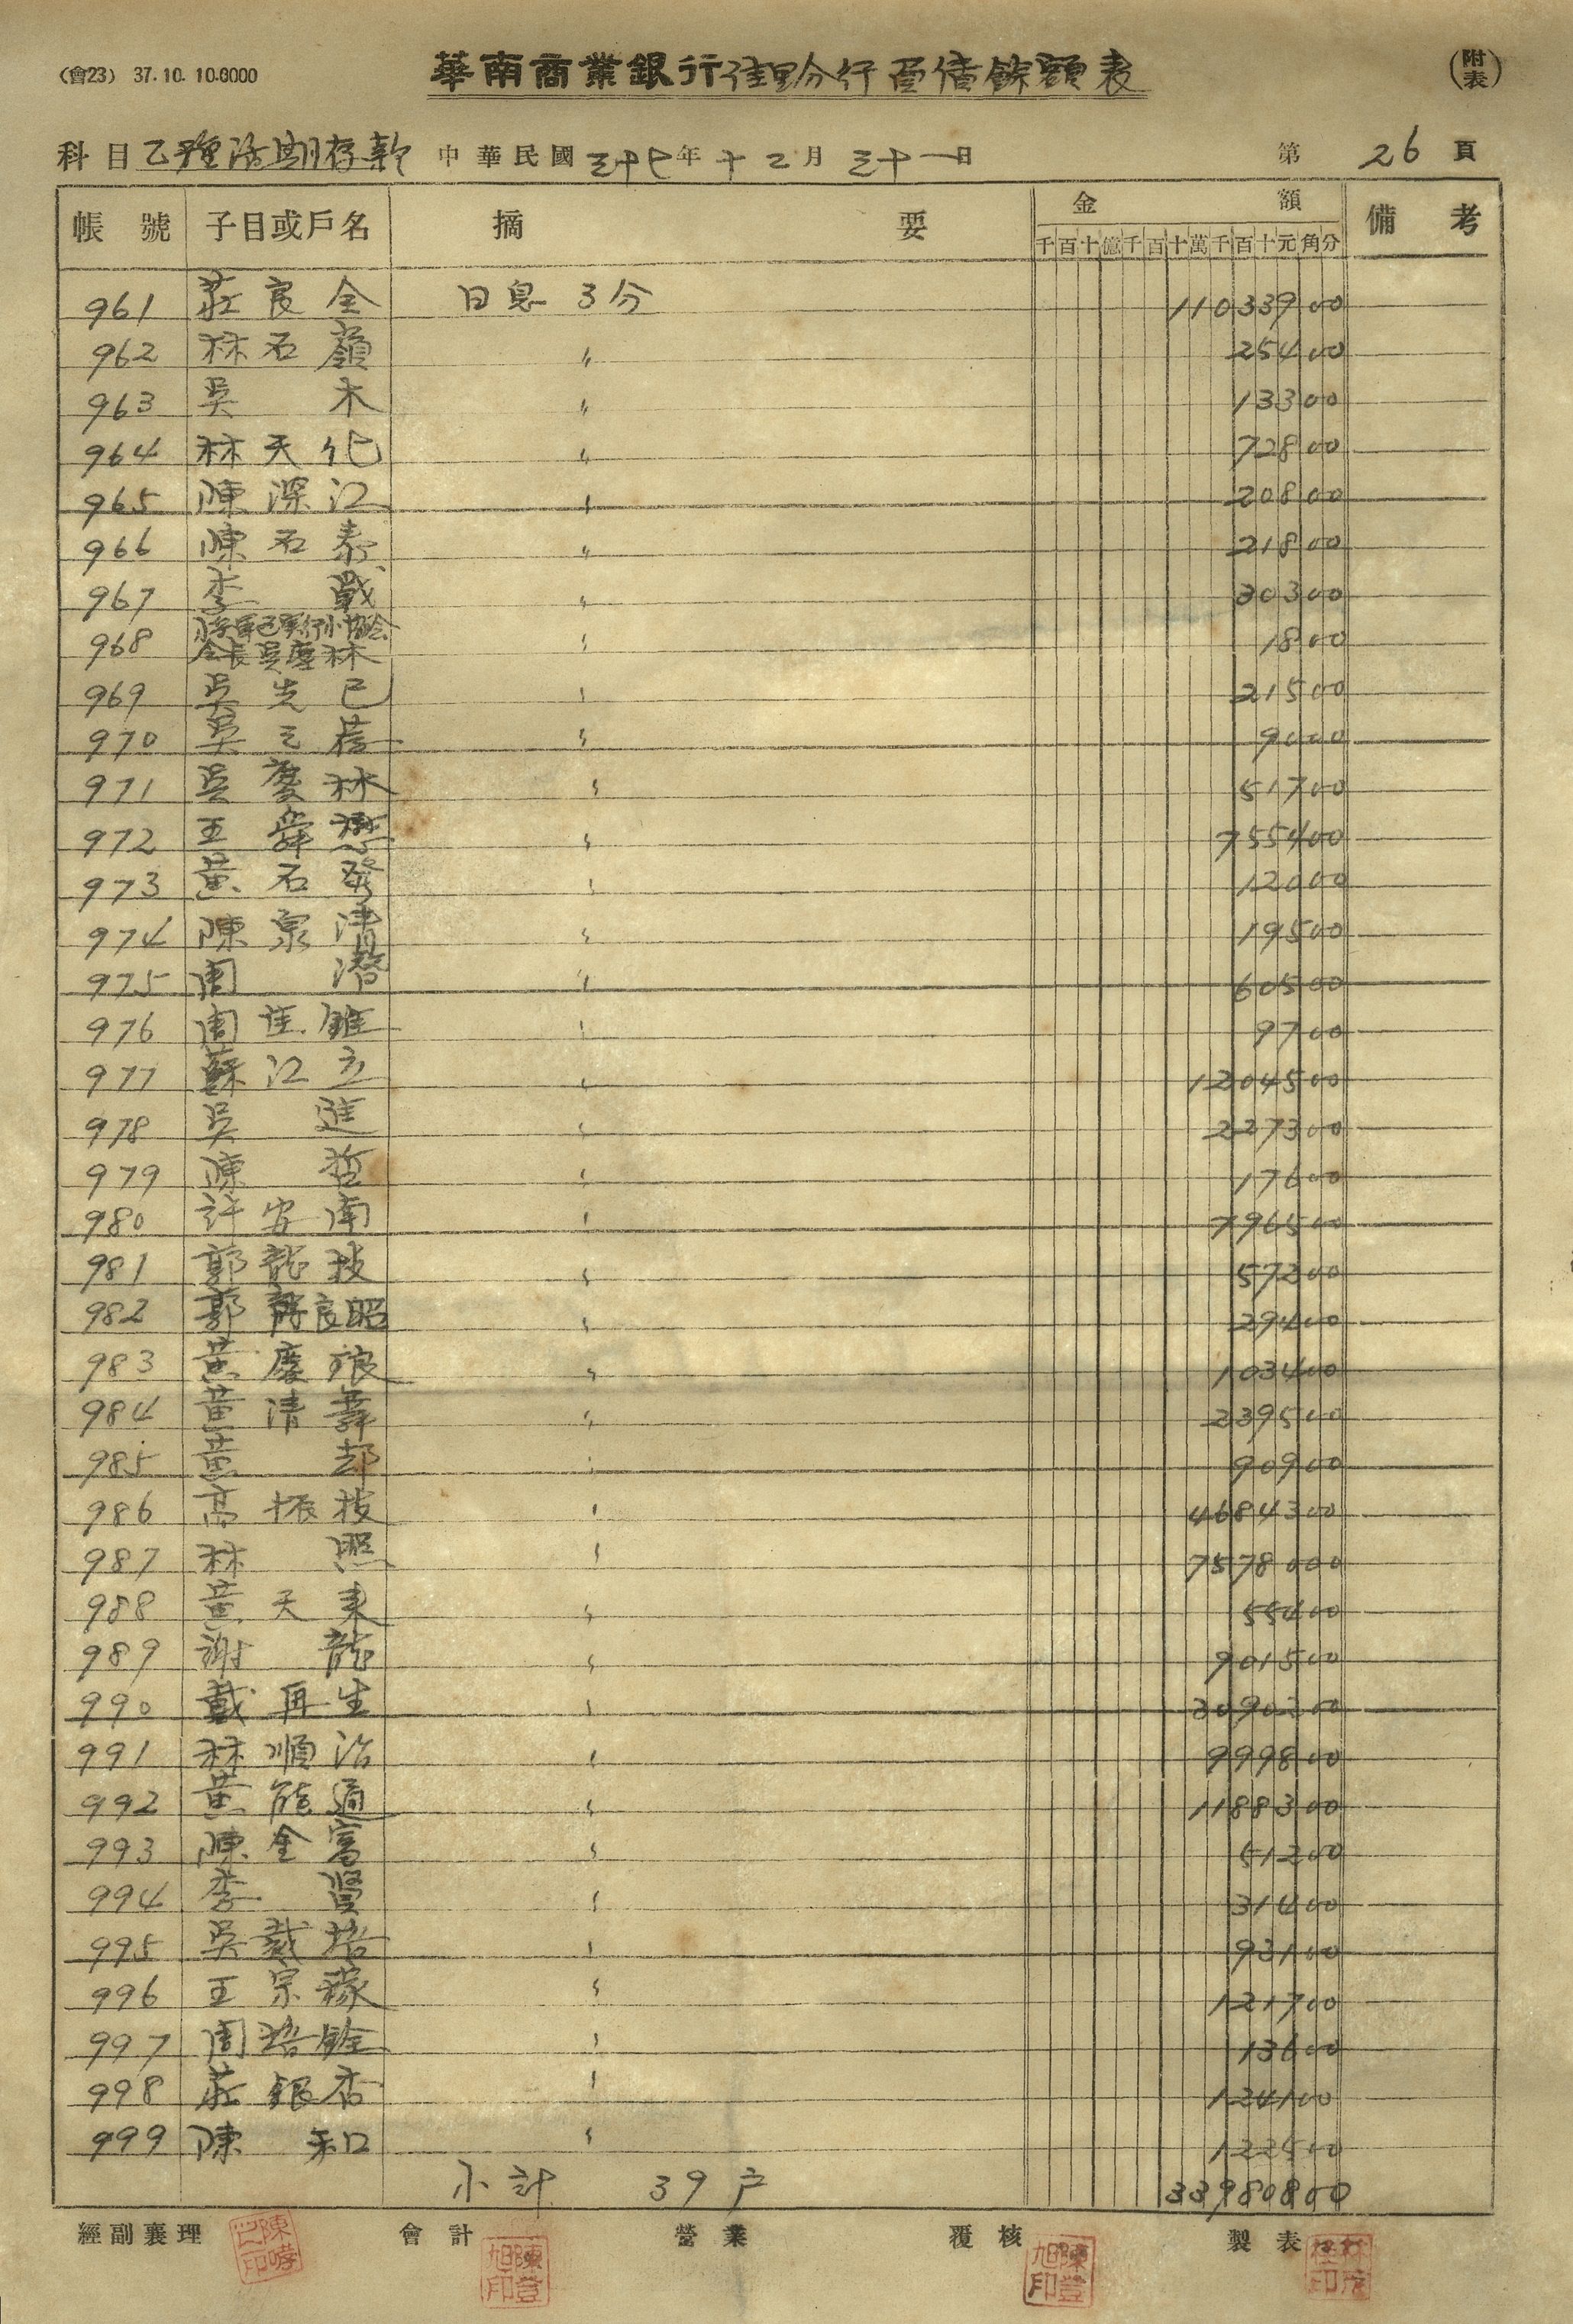 (會23) 37.10.10.6000
華南商業銀行佳里分行負債餘額表
(附表)
科目乙種活期存款 中華民國三十七年十二月三十一日 第26頁
帳號 子目或戶名 摘要 金額 備考
千百十億千百十萬千百十元角分
961 莊良全 日息 3分 11033900
962 林石嶺 〃 25400
963 吳木 〃 13300
964 林天化 〃 72800
965 陳深江 〃 20800
966 陳石泰 〃 21800
967 李戰 〃 30300
968 會長吳慶林 〃 1800
969 吳先巴 〃 21500
970 吳 〃 9000
971 吳慶林 〃 51700
972 王舜懋 〃 755400
973 黃石發 〃 12000
974 陳泉清 〃 19500
975 周潛 〃 60500
976 周佳錐 〃 9700
977 蘇江立 〃 1204500
978 吳進 〃 227300
979 陳哲 〃 17600
980 許安南 〃 796500
981 郭龍枝 〃 57200
982 郭薛良昭 〃 29400
983 黃慶琅 〃 103400
984 黃清舞 〃 239500
985 黃却 〃 90900
986 高振枝 〃 4684300
987 林照 〃 7578000
988 黃天來 〃 55400
989 謝龍 〃 901500
990 戴再生 〃 3090200
991 林順治 〃 999800
992 黃能通 〃 1188300
993 陳全富 〃 51200
994 李賢 〃 31400
995 吳裁培 〃 93100
996 王宗稼 〃 121700
997 周培銓 〃 13600
998 莊銀杏 〃 124100
999 陳和 〃 122500
小計 39戶 33980800
經副襄理 會計 營業 覆核 製表
陳登旭印
陳登旭印